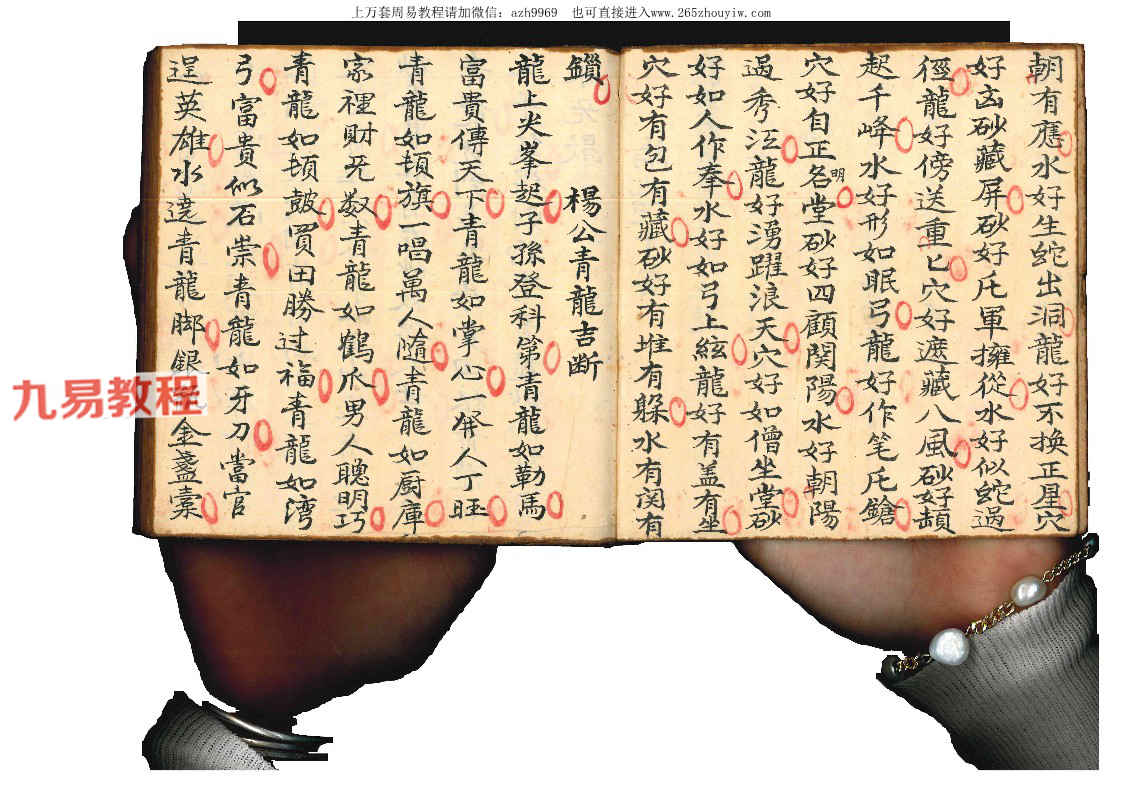 上万套周易教程请加微信：azh9969　也可直接进入www.265zhouyiw.com
朝有應水好生蛇出洞龍好不換正星穴
好高砂藏屏砂好托軍擁從水好似蛇過
徑龍好傍送重匕穴好遮藏八風砂好
起千峰水好形如眠弓龍好作笔托鎗
穴好自正名明堂砂好四顧関陽水好朝陽
過秀江龍好湧躍浪天穴好如僧坐堂砂
好如人作奉水好如弓上絃龍好有盖有坐
穴好有包有藏砂好有堆有躲水有関有
鎖　楊公青龍吉断
龍上火峯起子孫登科第青龍如勒馬
富貴傳天下青龍如掌心一發人丁旺
青龍如頓旗一唱萬人隨青龍如厨庫
家裡財无数青龍如鶴爪男人聰明巧
青龍如頓皷買田勝过福青龍如湾
弓富貴似石崇青龍如牙刀當官
逞英雄水遶青龍脚銀金盞
九易教程